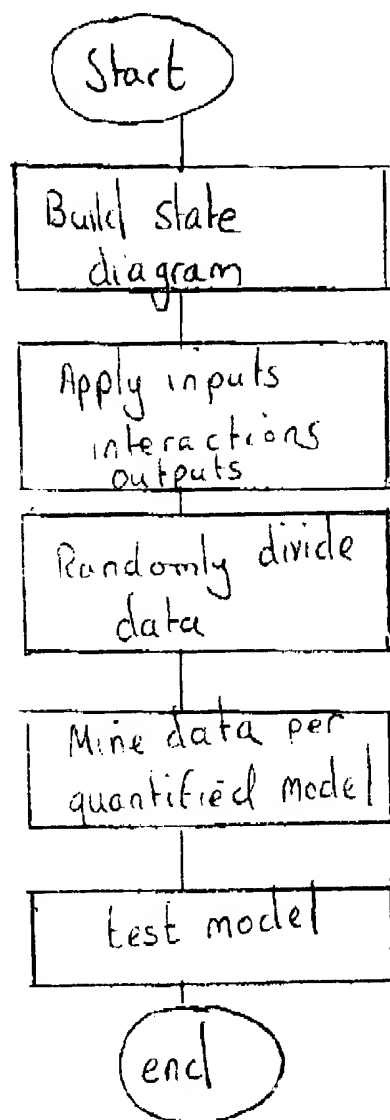 Start
Build state
diagram
Apply inputs
interactions
outputs
Randomly divide
data
Mine data per
quantified model
test model
end